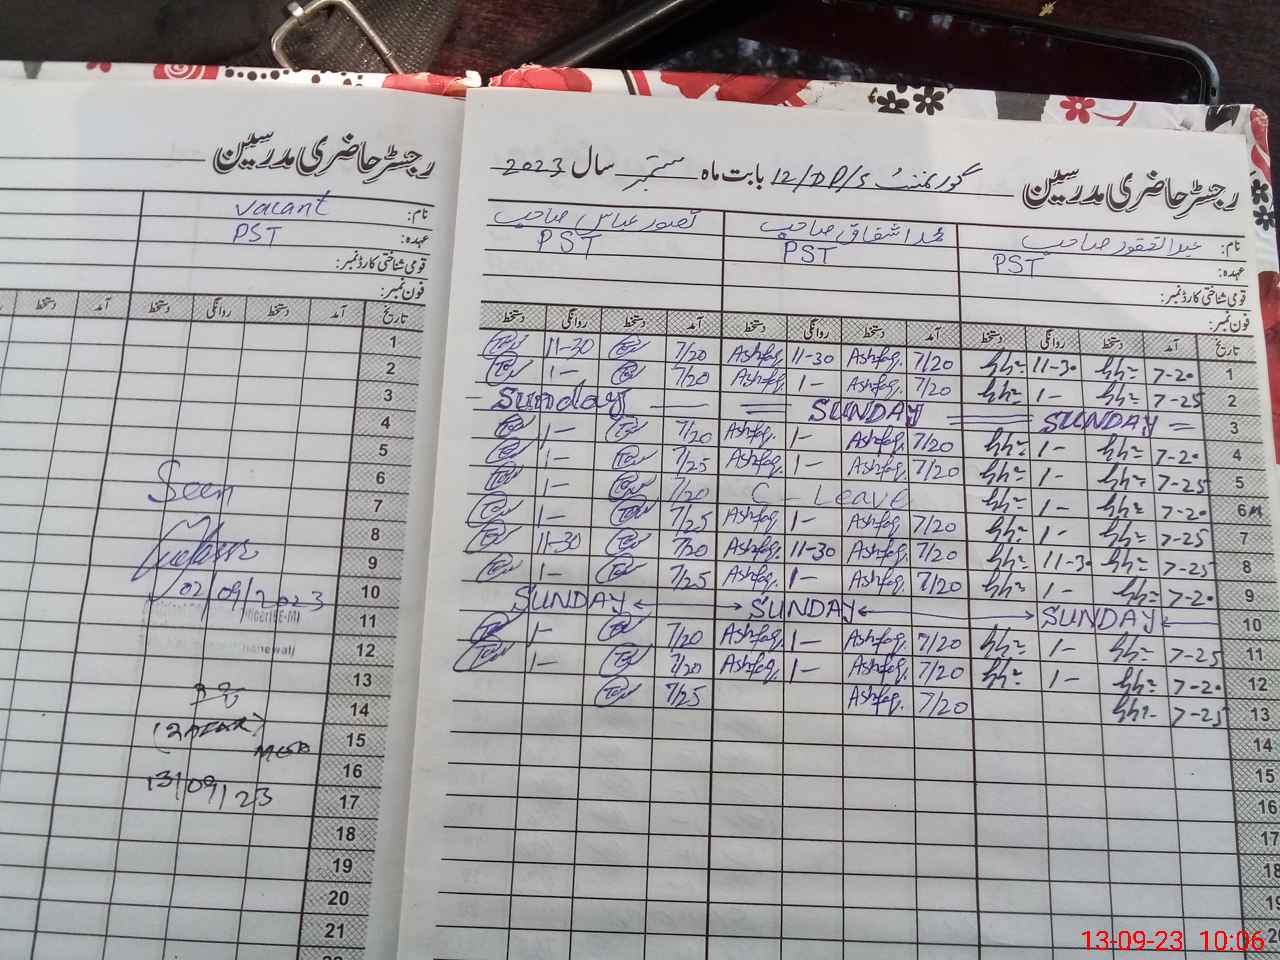 رجسٹر حاضری مدرسین گورنمنٹ 12/DP/S بابت ماہ ستمبر سال 2023
نام: عبدالغفور صاحب محمد اشفاق صاحب تصور عباس صاحب
عہدہ: PST PST PST
قومی شناختی کارڈ نمبر:
فون نمبر:
تاریخ آمد دستخط روانگی دستخط آمد دستخط روانگی دستخط آمد دستخط روانگی دستخط
1 7-20 11-30 7/20 Ashfaq. 11-30 Ashfaq. 7/20 11-30
2 7-25 1- 7/20 Ashfaq. 1- Ashfaq. 7/20 1-
3 SUNDAY SUNDAY Sunday
4 7-20 1- 7/20 Ashfaq. 1- Ashfaq. 7/20 1-
5 7-25 1- 7/20 Ashfaq. 1- Ashfaq. 7/25 1-
6 7-20 1- C-Leave 7/20 1-
7 7-25 1- 7/20 Ashfaq. 1- Ashfaq. 7/25 1-
8 7-25 11-30 7/20 Ashfaq. 11-30 Ashfaq. 7/20 11-30
9 7-20 1- 7/20 Ashfaq. 1- Ashfaq. 7/25 1-
10 SUNDAY SUNDAY SUNDAY
11 7-25 1- 7/20 Ashfaq. 1- Ashfaq. 7/20 1-
12 7-20 1- 7/20 Ashfaq. 1- Ashfaq. 7/20 1-
13 7-25 7/20 Ashfaq. 7/25
14
15
16
17
18
19
20
رجسٹر حاضری مدرسین
نام: Vacant
عہدہ: PST
قومی شناختی کارڈ نمبر:
فون نمبر:
تاریخ آمد دستخط روانگی دستخط آمد دستخط
1
2
3
4
5
6
Seen
7
8
9
10
02/09/2023
11
12
13
14
15
16
13/09/23
17
18
19
20
21
13-09-23 10:06